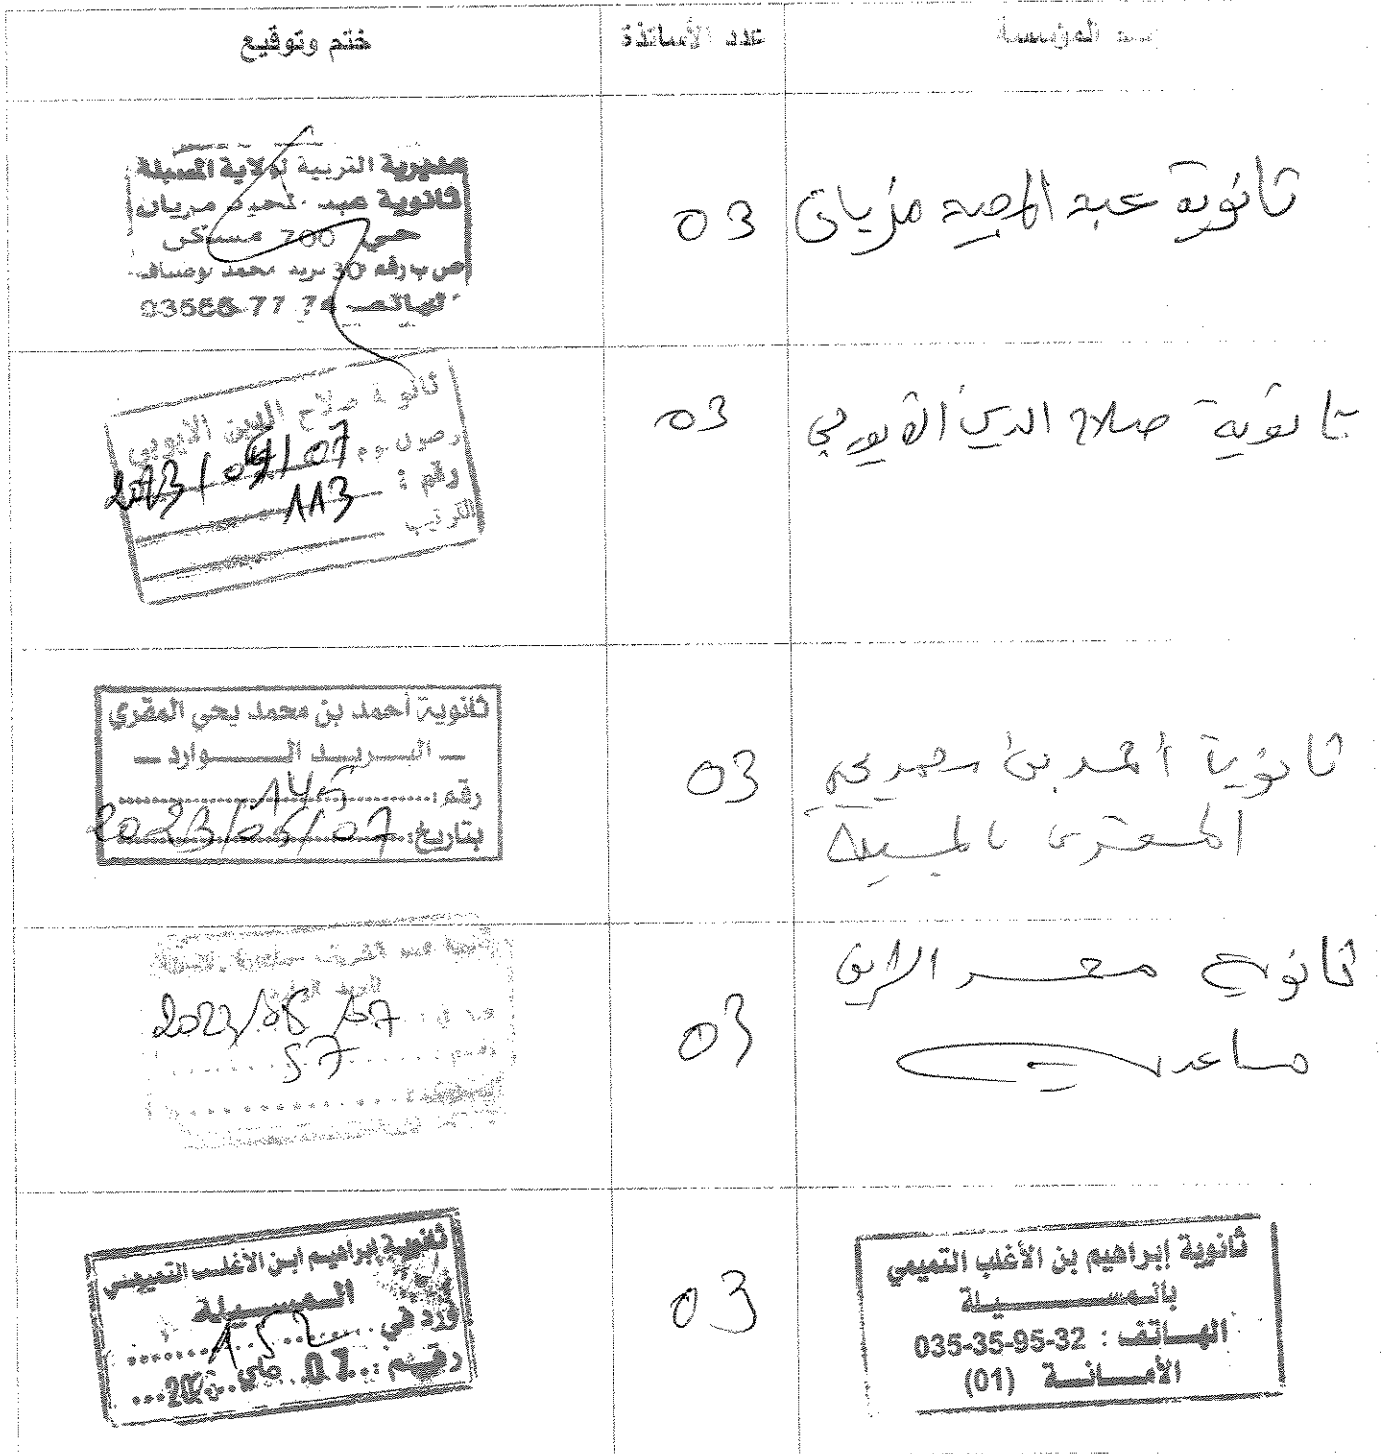 المؤسسة
عدد الأساتذة
ختم وتوقيع
ثانوية عبد المجيد مزيان
03
مديرية التربية لولاية المسيلة
ثانوية عبد المجيد مزيان
حي 700 مسكن
ص ب رقم 30 بريد محمد بوضياف
الهاتف 74 77 03555
ثانوية صلاح الدين الايوبي
03
ثانوية صلاح الدين الايوبي
2023/05/07
رقم : 113
الترتيب
ثانوية أحمد بن محمد يحي
المقري بالمسيلة
03
ثانوية أحمد بن محمد يحي المقري
— البـريـد الـوارد —
رقم: 145
بتاريخ: 2023/05/07
ثانوية محمد الشريف
مساعدية
03
2023/05/07
57
ثانوية إبراهيم بن الأغلب التميمي
بالمسيلة
الهاتف : 32-95-35-035
الأمانة (01)
03
ثانوية إبراهيم ابن الأغلب التميمي
المسيلة
ورد في
152
رقم : 07 ماي